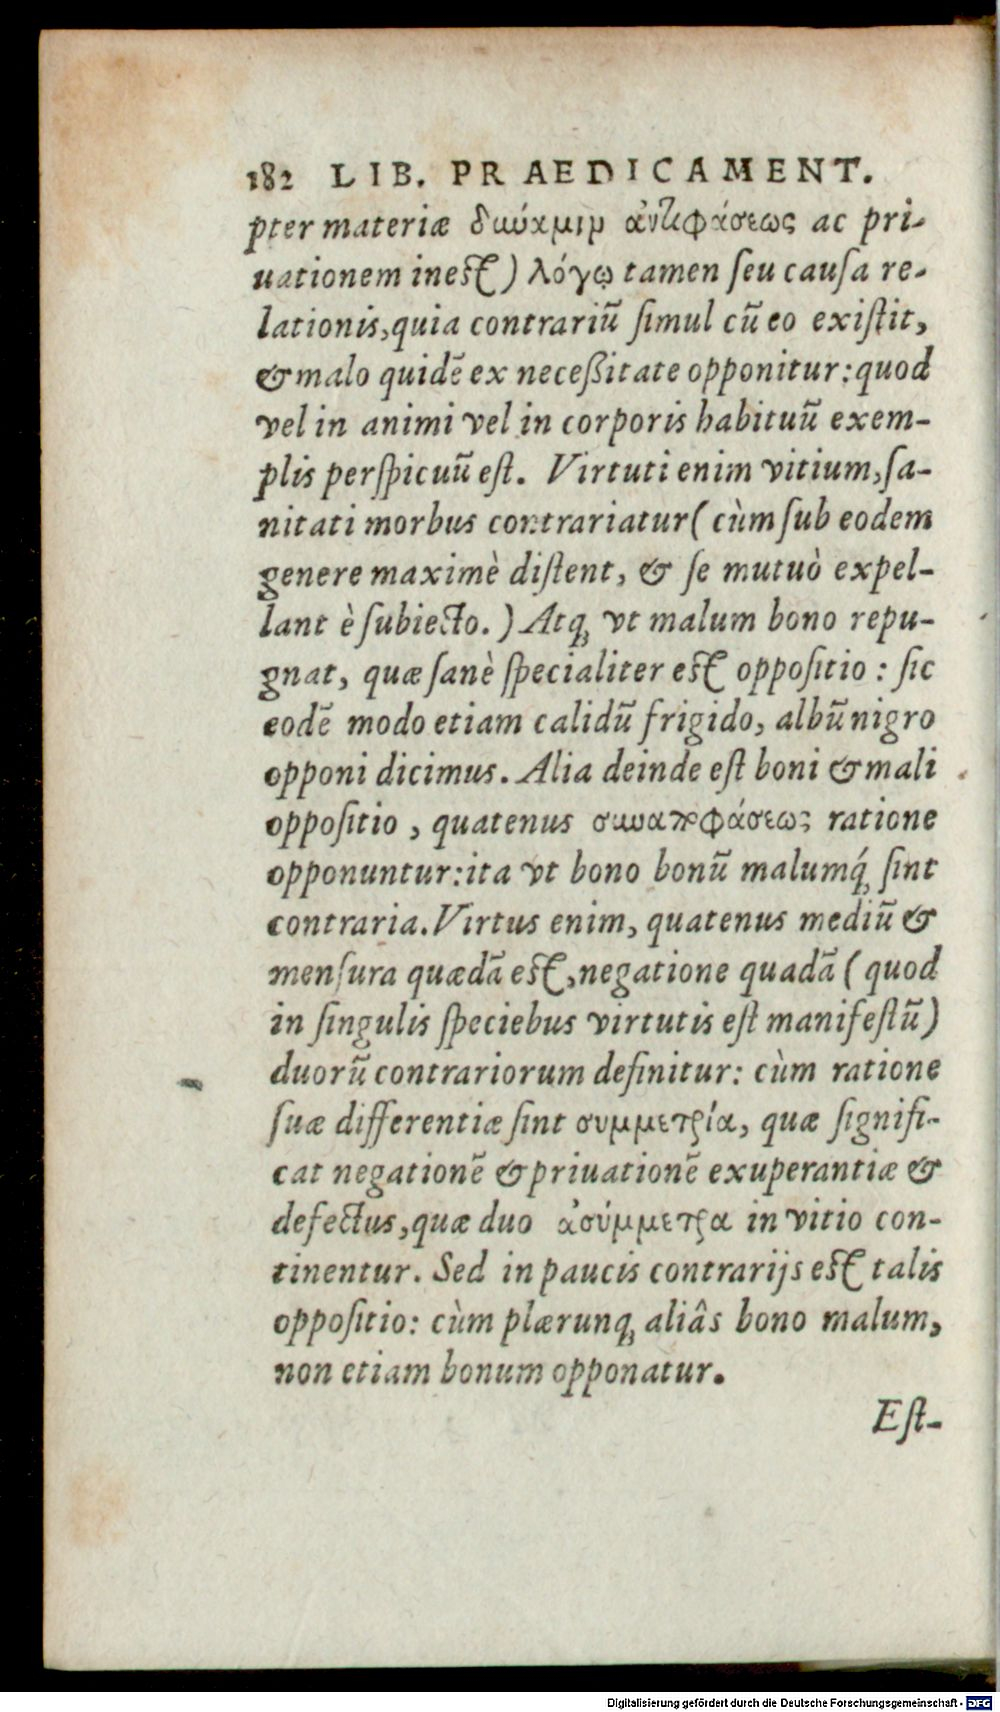 182 LIB. PRAEDICAMENT.
pter materiæ δύναμιν ἀντιφάσεως ac pri-
uationem inest) λόγῳ tamen seu causa re-
lationis, quia contrariū simul cū eo existit,
& malo quidē ex necessitate opponitur: quod
vel in animi vel in corporis habituū exem-
plis perspicuū est. Virtuti enim vitium, sa-
nitati morbus contrariatur (cùm sub eodem
genere maximè distent, & se mutuò expel-
lant è subiecto.) Atq; vt malum bono repu-
gnat, quæ sanè specialiter est oppositio: sic
eodē modo etiam calidū frigido, albū nigro
opponi dicimus. Alia deinde est boni & mali
oppositio, quatenus συναποφάσεως ratione
opponuntur: ita vt bono bonū malumq́; sint
contraria. Virtus enim, quatenus mediū &
mensura quædā est, negatione quadā (quod
in singulis speciebus virtutis est manifestū)
duorū contrariorum definitur: cùm ratione
suæ differentiæ sint συμμετρία, quæ signifi-
cat negationē & priuationē exuperantiæ &
defectus, quæ duo ἀσύμμετρα in vitio con-
tinentur. Sed in paucis contrarijs est talis
oppositio: cùm plærunq; aliâs bono malum,
non etiam bonum opponatur.
Est-
Digitalisierung gefördert durch die Deutsche Forschungsgemeinschaft - DFG